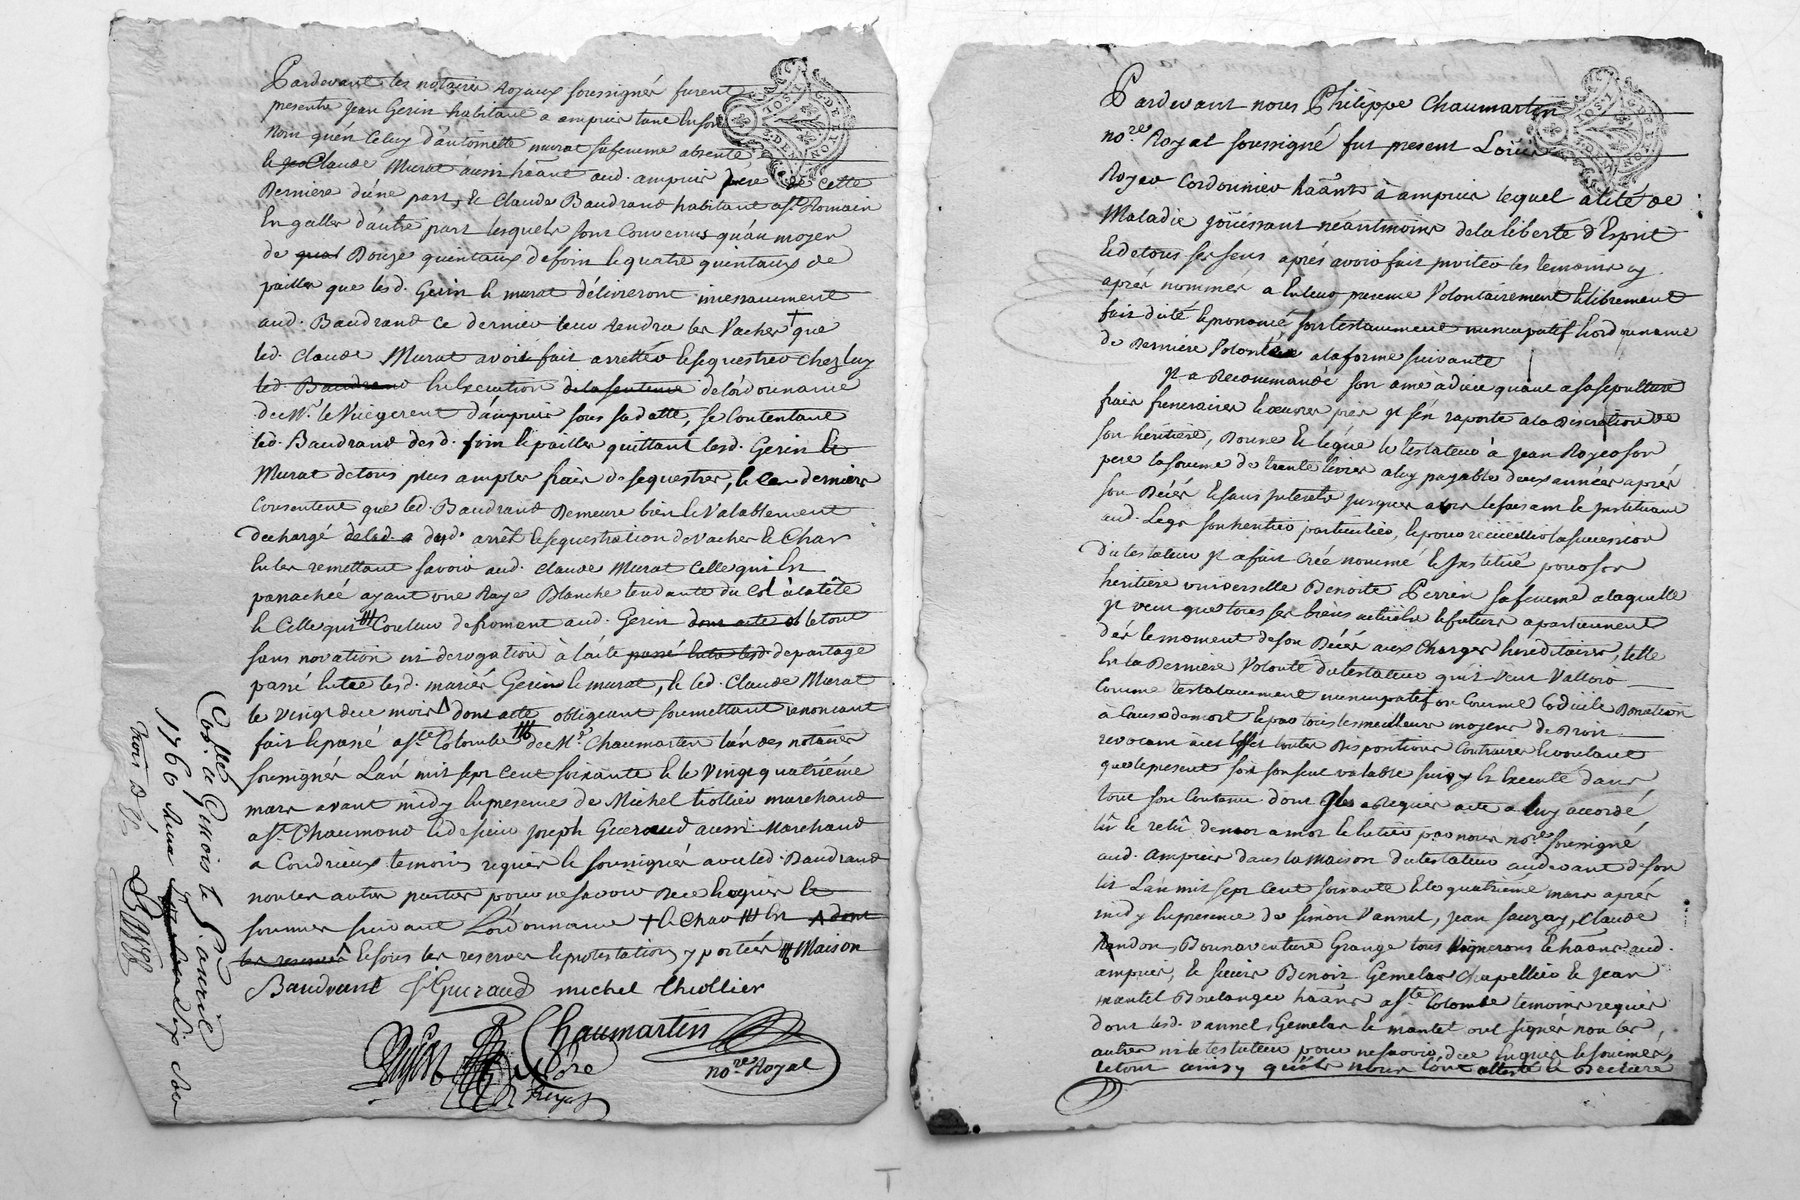 Pardevant les notaires Royaux soussignés furent
presents Jean Gerin habitant a ampuis tant en son
nom qu'en celuy d'antoinette murat sa femme absente
Claude Murat aussi häant aud. ampuis pere de cette
Derniere d'une part, & Claude Baudrand habitant a St. Romain
En gallet d'autre part lesquels sont convenus qu'au moyen
de Douze quintaux de foin & quatre quintaux de
paille que lesd. Gerin & murat délivreront incessamment
aud. Baudrand ce dernier leur Rendra les Vaches + que
led. Claude Murat avoit fait arrettér & sequestrer chez luy
led. Baudrand En Execution de la sentence de l'ordonnance
de Mr. le Viègerent d'ampuis sous sa datte, se Contentant
led. Baudrand desd. foin & paille quittant lesd. Gerin &
Murat de tous plus amples frais de sequestres, & ces derniers
Consentent que led. Baudrand Demeure bien & Valablement
dechargé desd. arrêt & sequestration de Vaches & Char
En les remettant savoir aud. Claude Murat Celle qui Est
panachée ayant une Raye Blanche tendante du Col à la tête
& Celle qui Couleur de froment aud. Gerin dont acte & le tout
sans novation ni derogation à l'acte passé entre lesd. de partage
passé Entre lesd. mariés Gerin & murat, & led. Claude Murat
le vingt deux mois Δ dont acte obligeant soumettant renoncant
fait & passé a Ste Colombe de Mr. Chaumartin l'un des notaires
soussignés L'an mil sept cent soixante & le Vingt quatriéme
mars avant midy En presence de Michel tiollier marchand
a St. Chaumond & de sieur Joseph Gueraud aussi Marchand
a Condrieux temoins requis & soussignés avec led. Baudrand
non les autres parties pour ne savoir De ce Enquis &
sommés suivant L'ordonnance + & Char Est Δ dont
les reserves & sous les reserves & protestations y portées Maison
Baudrant Gueraud michel thiollier
Chaumartin
nore. Royal
1760
Pardevant nous Philippe Chaumartin
nore. Royal soussigné fut present Loüis
Royer Cordonnier häant à ampuis lequel atité de
Maladie joüissant néantmoins de la liberté d'Esprit
& de tous ses sens aprés avoir fait inviter les temoins cy
aprés nommés a En leur presence Volontairement & librement
fait dicté & prononcé son testament nuncupatif & ordonnance
de Derniere Volonté a la forme suivante
Il a Recommandé son ame à dieu quant a sa sepulture
frais funeraires & œuvres pies Il s'en raporte a la Discretion de
son héritiere, Donne & légue le testateur à jean Royer son
pere la somme de trente livres a luy payable deux années aprés
son Décés & sans interets jusques alors & faisant & Instituant
aud. Legs son heritier particulier, & pour recüeillir la succession
du testateur Il a fait créé nommé & Institué pour son
héritiere universelle Benoite Perrin sa femme a laquelle
Il veut que tous ses biens actuels & futurs apartiennent
dés le moment de son Décés aux Charges hereditaires, telle
Est la Derniere Volonté du testateur qu'il Veut Valloir
Comme testatament nuncupatif ou Comme Codicile Donation
à Cause de mort & par tous les meilleurs moyens de Droit
revocant à cet Effet toutes Dispositions Contraires & voulant
que le present soit son seul valable suivy & Executé dans
tout son Contenu dont Il a requis acte a luy accordé
lû & relû de mot a mot & en entier par nous nore. soussigné
aud. Ampuis dans la Maison du testateur au devant de son
lit L'an mil sept Cent soixante & le quatriéme mars aprés
midy En presence de Simon Vannel, Jean Sauzay, Claude
Randon, Bonnaventure Grange tous Vignerons & häants aud.
ampuis, & sieurs Benoit Gemelas Chapellier & Jean
mantel Boulanger häants a Ste. Colombe temoins requis
dont lesd. Vannel, Gemelas & mantel ont signé non les
autres ni le testateur pour ne savoir de ce Enquis & sommés,
le tout ainsy qu'ils nous l'ont attesté & Declaré